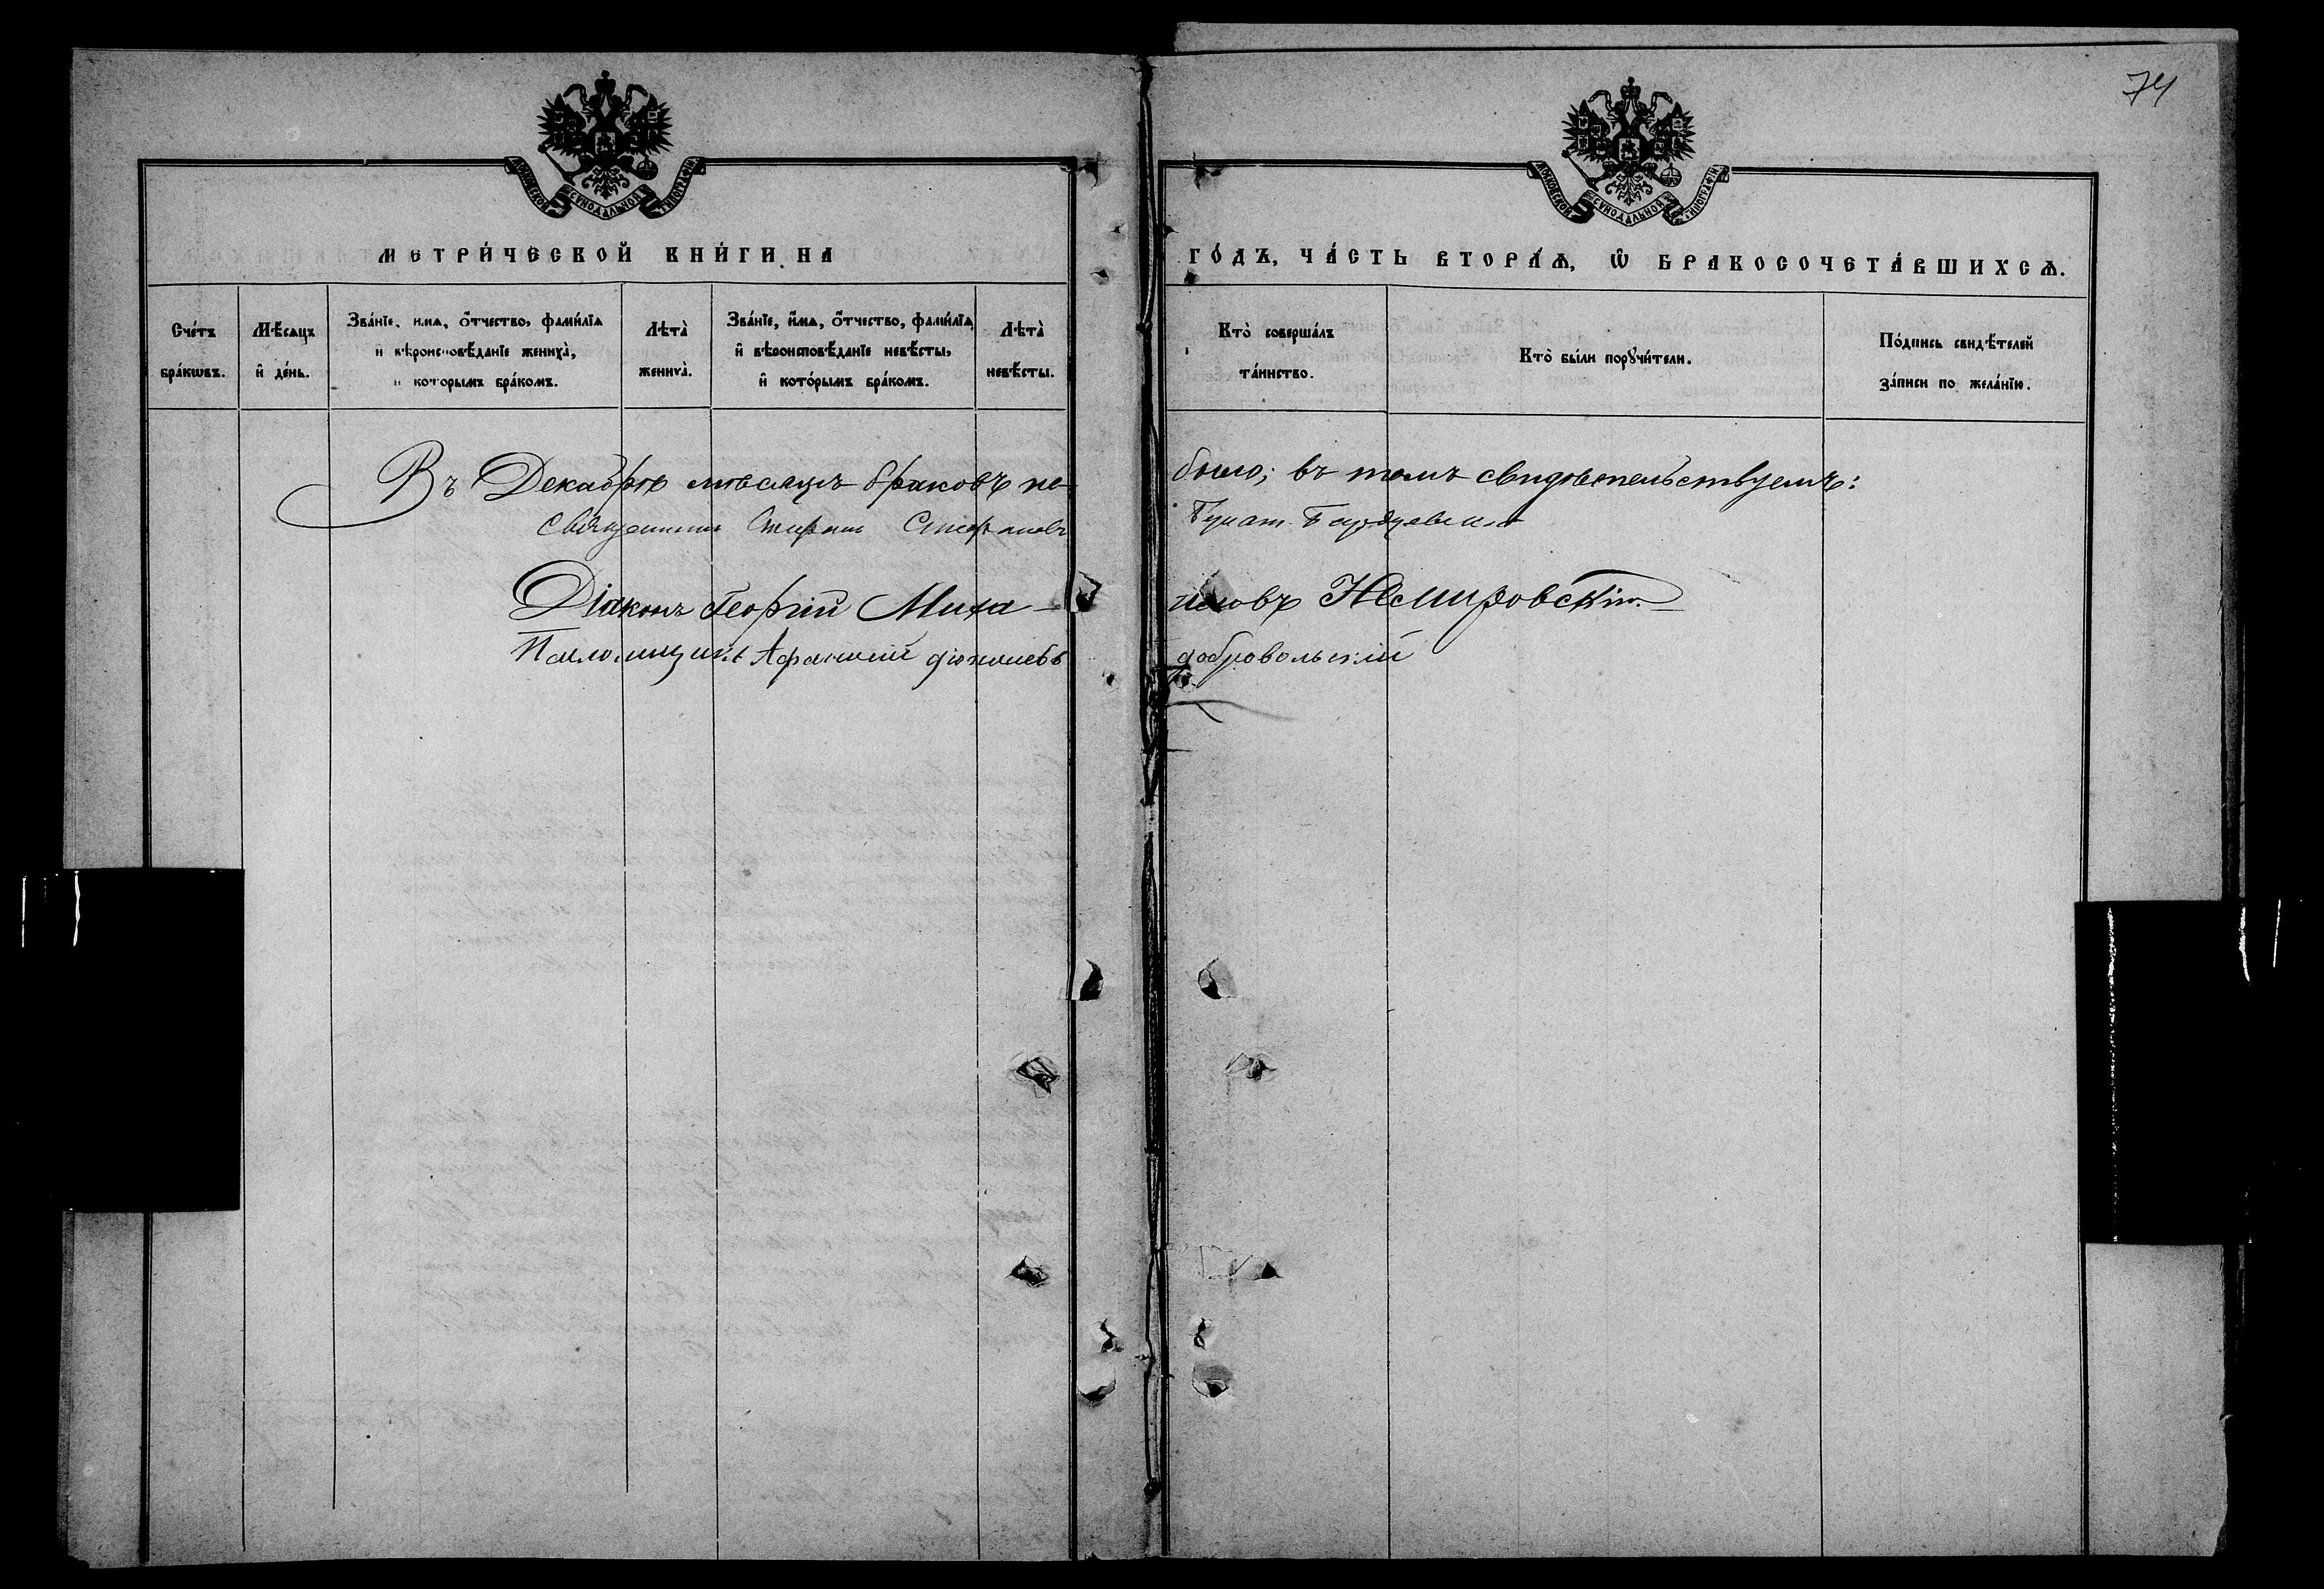 74
МОСКОВСКОЙ СѴНОДАЛЬНОЙ ТИПОГРАФІИ
МОСКОВСКОЙ СѴНОДАЛЬНОЙ ТИПОГРАФІИ
МЕТРИ́ЧЕСКОЙ КНИ́ГИ НА ГО́ДЪ, ЧА́СТЬ ВТОРА́Ѧ, Ѽ БРАКОСОЧЕТА́ВШИХСѦ.
Сче́тъ
бра́кѡвъ.
Мѣ́сѧцъ
и҆ де́нь.
Зва́нїе, и҆́мѧ, ѻ҆́тчество, фами́лїѧ
и҆ вѣроисповѣ́данїе жениха̀,
и҆ кото́рымъ бра́комъ.
Лѣта̀
жениха̀.
Зва́нїе, и҆́мѧ, ѻ҆́тчество, фами́лїѧ
и҆ вѣроисповѣ́данїе невѣ́сты,
и҆ кото́рымъ бра́комъ.
Лѣта̀
невѣ́сты.
Кто̀ соверша́лъ
та́инство.
Кто̀ бы́ли порꙋчи́тели.
По́дпись свидѣ́телей
за́писи по жела́нїю.
Въ Декабрѣ мѣсяцѣ браковъ не было; въ томъ свидѣтельствуемъ:
Священникъ Стефанъ Стефановъ
Діаконъ Георгій Миха- иловъ Немировскій.
Псаломщикъ Афанасій Діонисіевъ Добровольскій